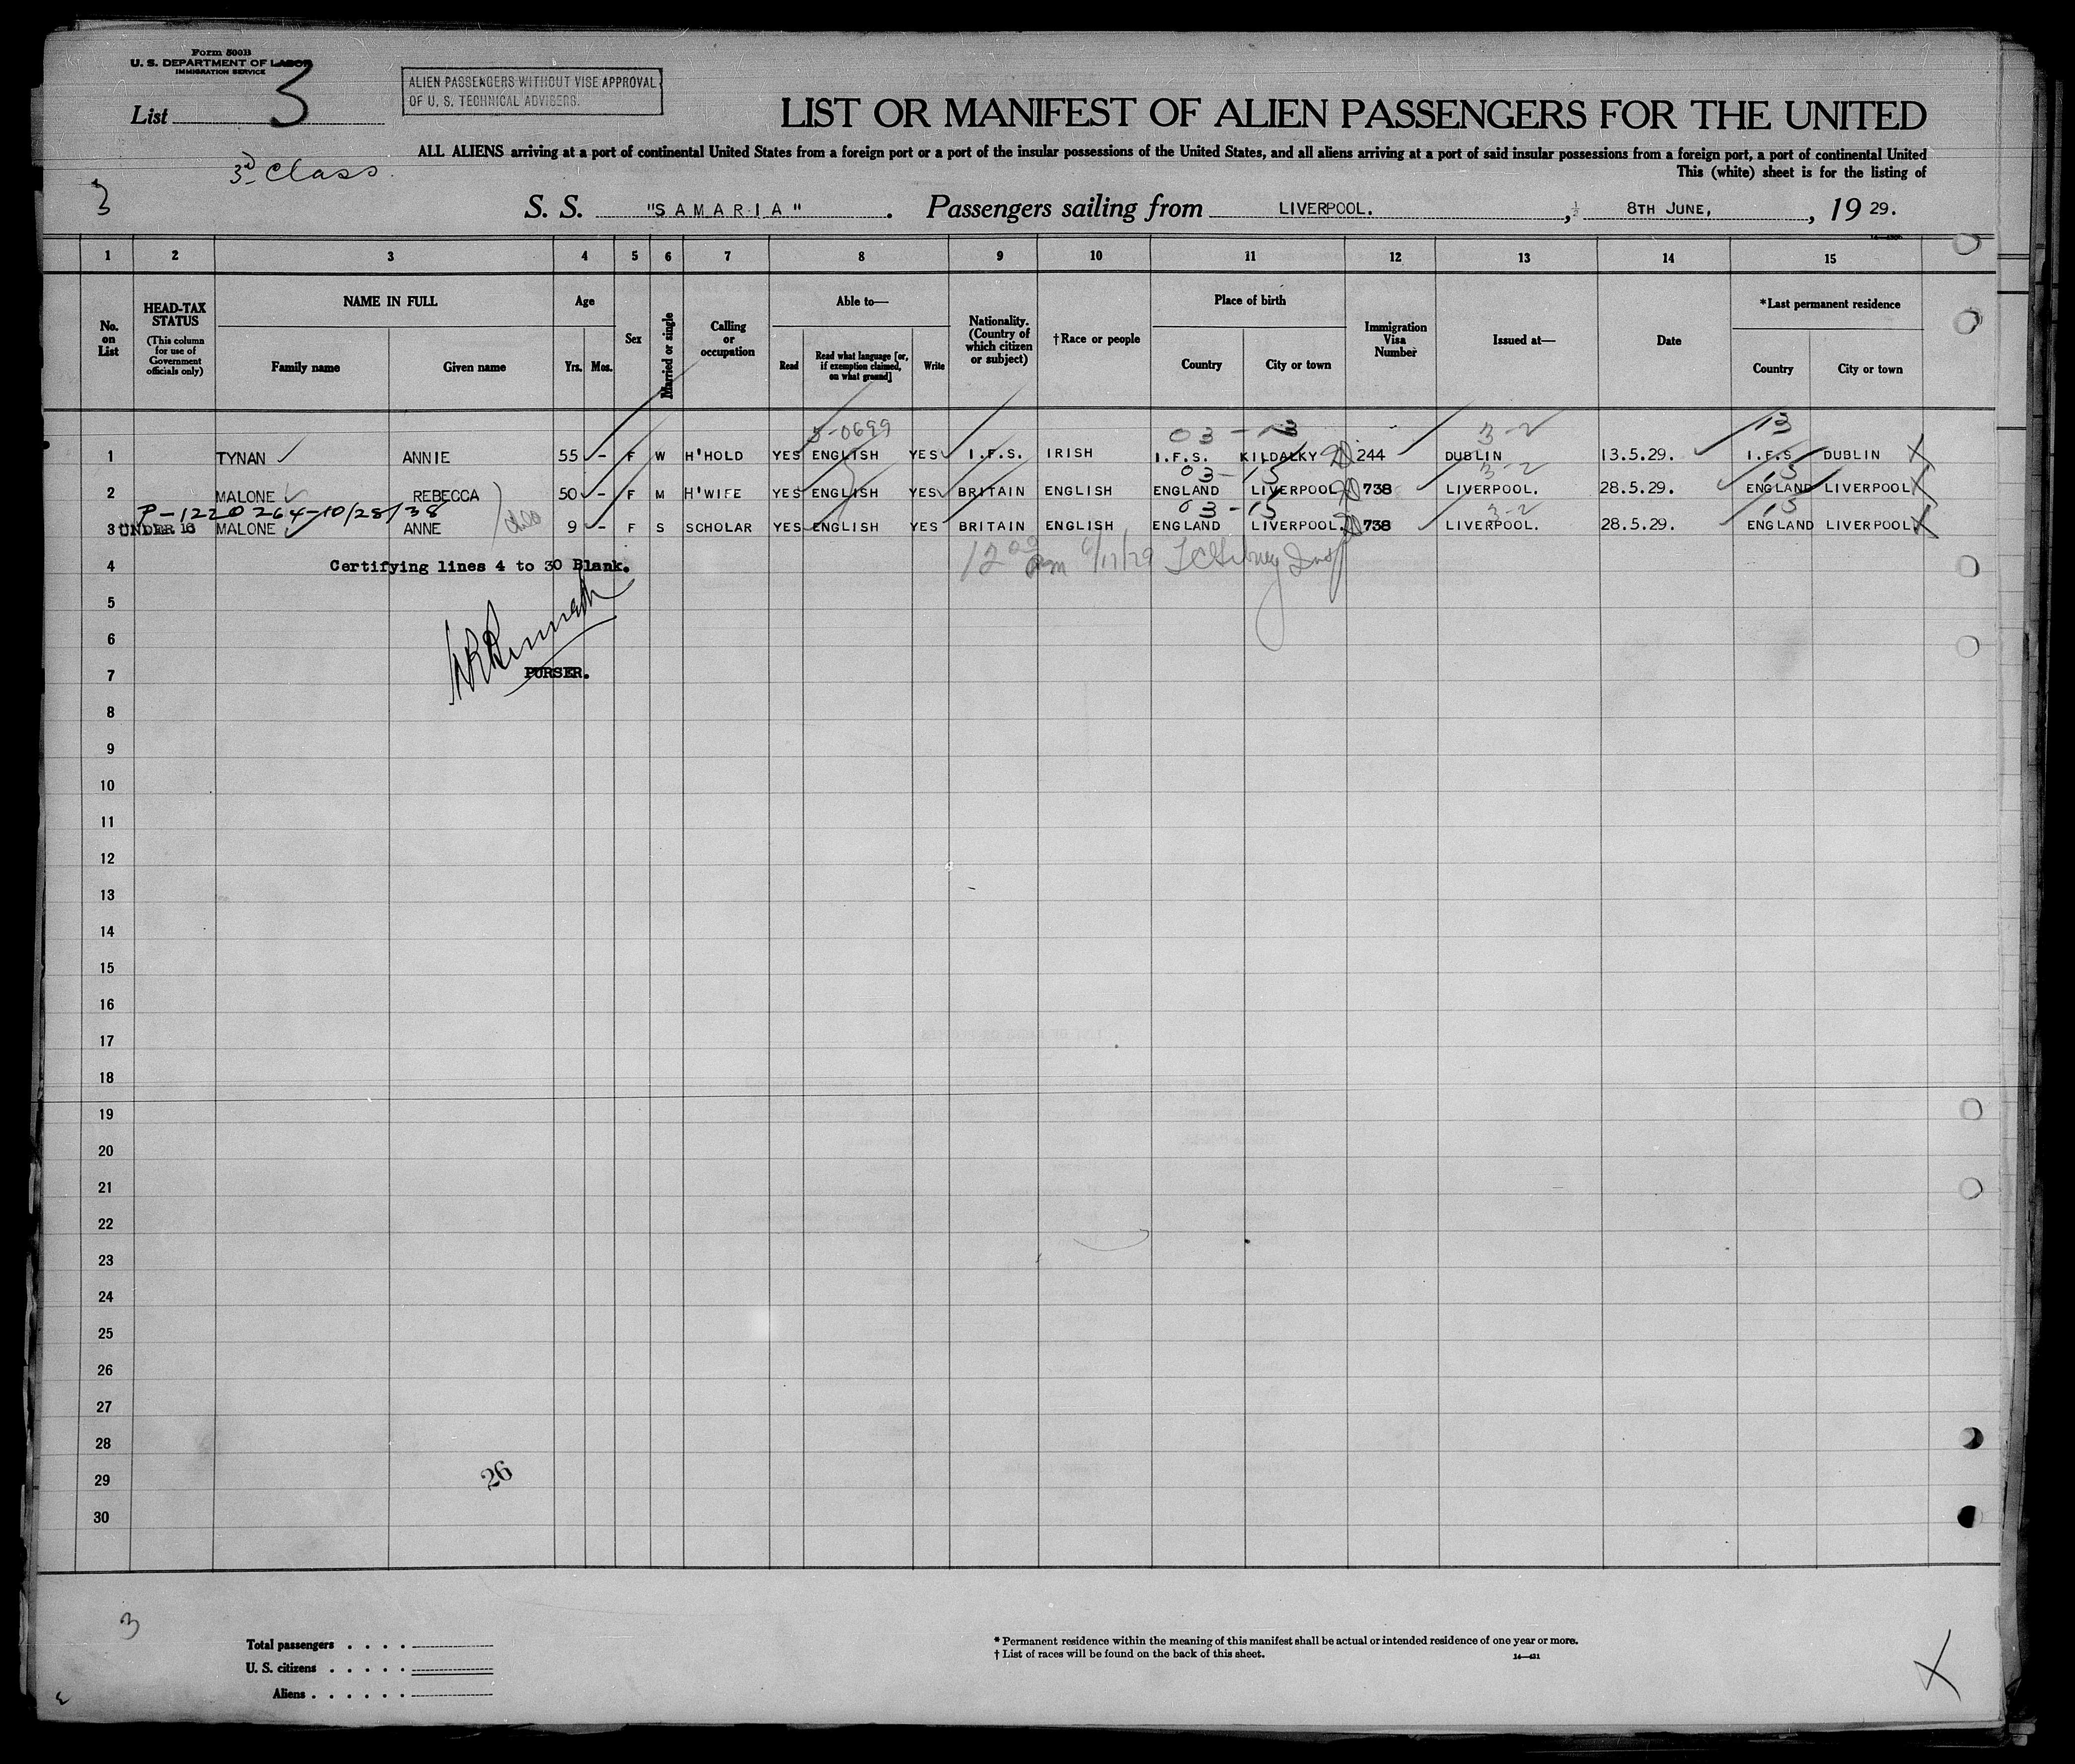 Form 500B
U. S. DEPARTMENT OF LABOR
IMMIGRATION SERVICE
List 3
ALIEN PASSENGERS WITHOUT VISE APPROVAL
OF U. S. TECHNICAL ADVISERS.
LIST OR MANIFEST OF ALIEN PASSENGERS FOR THE UNITED
ALL ALIENS arriving at a port of continental United States from a foreign port or a port of the insular possessions of the United States, and all aliens arriving at a port of said insular possessions from a foreign port, a port of continental United
This (white) sheet is for the listing of
3d Class
3
S. S. "SAMARIA". Passengers sailing from LIVERPOOL., 8TH JUNE, , 19 29.
1 2 3 4 5 6 7 8 9 10 11 12 13 14 15
No. on List
HEAD-TAX STATUS
(This column for use of Government officials only)
NAME IN FULL
Family name Given name
Age
Yrs. Mos.
Sex
Married or single
Calling or occupation
Able to—
Read Read what language [or, if exemption claimed, on what ground] Write
Nationality. (Country of which citizen or subject)
†Race or people
Place of birth
Country City or town
Immigration Visa Number
Issued at—
Date
*Last permanent residence
Country City or town
5-0699 03-13 3-2 13
1 TYNAN ANNIE 55 - F W H'HOLD YES ENGLISH YES I.F.S. IRISH I.F.S. KILDALKY 244 DUBLIN 13.5.29. I.F.S DUBLIN
03-15 3-2 15
2 MALONE REBECCA 50 - F M H'WIFE YES ENGLISH YES BRITAIN ENGLISH ENGLAND LIVERPOOL 738 LIVERPOOL. 28.5.29. ENGLAND LIVERPOOL
P-1220264-10/28/38 03-15 3-2 15
3 UNDER 16 MALONE ANNE 9 - F S SCHOLAR YES ENGLISH YES BRITAIN ENGLISH ENGLAND LIVERPOOL. 738 LIVERPOOL. 28.5.29. ENGLAND LIVERPOOL
4 Certifying lines 4 to 30 Blank.
5
6
7 PURSER.
8
9
10
11
12
13
14
15
16
17
18
19
20
21
22
23
24
25
26
27
28
29 26
30
3
Total passengers . . . .
U. S. citizens . . . . .
Aliens . . . . . .
* Permanent residence within the meaning of this manifest shall be actual or intended residence of one year or more.
† List of races will be found on the back of this sheet.
14—431